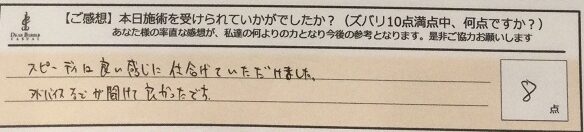 【ご感想】本日施術を受けられていかがでしたか?(ズバリ10点満点中、何点ですか?)
あなた様の率直な感想が、私達の何よりの力となり今後の参考となります。是非ご協力お願いします
スピーディに良い感じに仕上げていただけました。
アドバイスなどが聞けて良かったです。
8
点